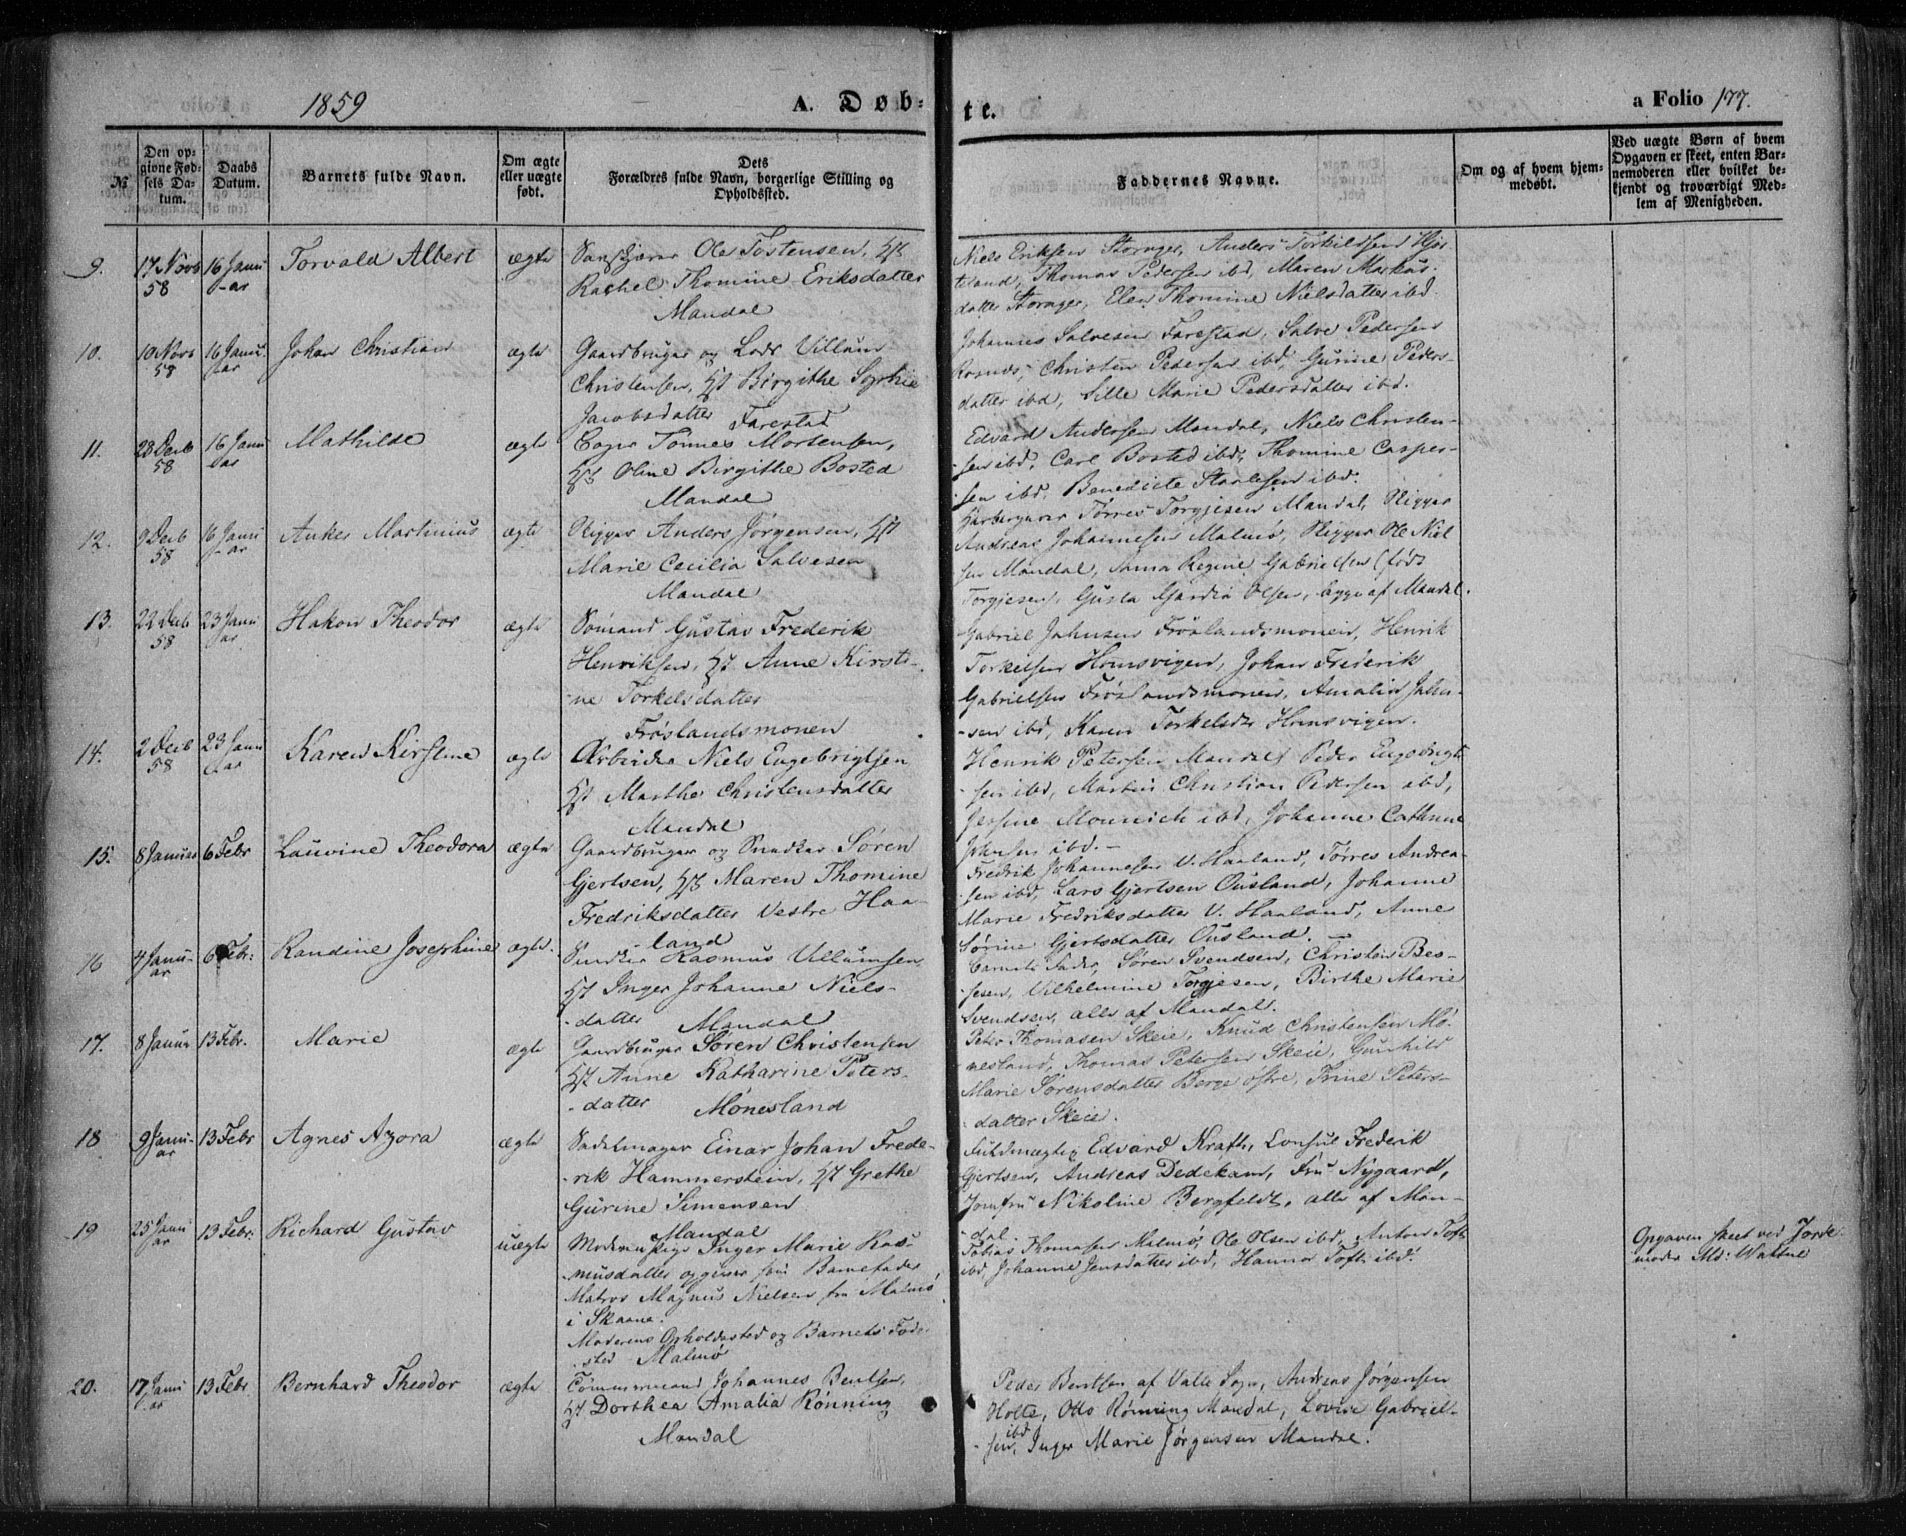 1859 A. Døb-
te. a Folio 177.
№
Den op-
givne Fød-
sels Da-
tum.
Daabs
Datum.
Barnets fulde Navn.
Om ægte
eller uægte
født.
Dets
Forældres fulde Navn, borgerlige Stilling og
Opholdssted.
Faddernes Navne.
Om og af hvem hjem-
medøbt.
Ved uægte Børn af hvem
Opgaven er skeet, enten Bar-
nemoderen eller hvilket be-
kjendt og troværdigt Med-
lem af Menigheden.
9. 17 Novb 58 16 Janu-ar Torvald Albert ægte
Ole Tostensen, Hst
Rachel Thomine Eriksdatter
Mandal
Niels Eriksen Storager, Anders Torkildsen Hjor-
teland, Thomas Pedersen ibd, Maren Markus-
datter Storager, Elen Thomine Nielsdatter ibd.
10. 10 Novb 58 16 Janu-ar Johan Christian ægte
Gaardbruger og Lods Villum
Christensen, Hst Birgithe Sophie
Jacobsdatter Farestad
Johannes Salvesen Farestad, Salve Pedersen
Rosnes, Christen Pedersen ibd, Gurine Peders-
datter ibd, Sille Marie Pedersdatter ibd.
11. 28 Decb 58 16 Janu-ar Mathilde ægte
Tønnes Mortensen,
Hst Oline Birgithe Bosted
Mandal
Edvard Andersen Mandal, Niels Christen-
-sen ibd, Carl Bosted ibd, Thomine Casper-
-sen ibd, Benedicte Starlesen ibd.
12. 9 Decb 58 16 Janu-ar Anker Martinius ægte
Rigger Anders Jørgensen, Hst
Marie Cecilia Salvesen
Mandal
Tørres Torgjesen Mandal, Rigger
Andreas Johannesen Malmø, Rigger Ole Niel
sen Mandal, Anna Regine Gabrielsen (født
Torgjesen), Gusta Olsen, begge af Mandal.
13. 22 Decb 58 23 Janu-ar Hakon Theodor ægte
Sømand Gustav Frederik
Henriksen, Hst Anne Kirsti-
-ne Torkelsdatter
Frøslandsmonen
Gabriel Jahnsen Frøslandsmonen, Henrik
Torkelsen Homsvigen, Johan Frederik
Gabrielsen Frøslandsmonen, Amalia Jahn-
-sen ibd, Karen Torkelsdtr Homsvigen.
14. 2 Decb 58 23 Janu-ar Karen Kirstine ægte
Arbeider Niels Engebrigtsen
Hst Marthe Christensdatter
Mandal
Henrik Petersen Mandal, Peder Engebrigt-
-sen ibd, Martin Christian Pedersen ibd,
Jessine Mounich ibd, Johanne Cathrine
Johnsen ibd.-
15. 8 Januar 6 Febr Lauvine Theodora ægte
Gaardbruger og Snedker Søren
Gjertsen, Hst Maren Thomine
Fredriksdatter Vestre Haa-
land
Fredrik Johannesen V. Haaland, Tørres Andrea-
-sen ibd, Lars Gjertsen Ousland, Johanne
Marie Fredriksdatter V. Haaland, Anne
Sørine Gjertsdatter Ousland.
16 4 Janu-ar 6 Febr: Randine Josephine ægte.
Snedker Rasmus Villumsen,
Hst Inger Johanne Niels-
-datter Mandal
Barnets Fader, Søren Svendsen, Christen Bes-
-sesen, Vilhelmine Torgjesen, Birthe Marie
Svendsen, alle af Mandal.
17. 8 Januar 13 Febr. Marie ægte
Gaardbruger Søren Christensen
Hst Anne Katharine Peters-
-datter Mønesland
Peter Thomasen Skeie, Knud Christensen Mø-
nesland, Thomas Petersen Skeie, Gunhild
Marie Sørensdatter Berge østre, Trine Peters-
datter Skeie.
18 9 Janu-ar 13 Febr Agnes Azora ægte
Sadelmager Einar Johan Frede-
-rik Hammerstein, Hst Grethe
Gurine Simensen
Mandal
Fuldmægtig Edvard Kraft, Consul Frederik
Gjertsen, Andreas Dedekam, Fru Nygaard,
Jomfru Nikoline Bergfeldt, alle af Man-
-dal.
19 25 Janu-ar 13 Febr. Richard Gustav uægte
Moderen Pige Inger Marie Ras-
musdatter opgiver som Barnefader
Matros Magnus Nielsen fra Malmø
i Skaane.
Moderens Opholdssted og Barnets Føde-
-sted Malmø
Tobias Thomasen Malmø, Ole Olsen ibd, Anton Toft
ibd, Johanne Jensdatter ibd, Hanna Toft ibd.
Opgaven skeet ved Jorde-
moder Md: Wattne
20. 17 Janu-ar 13 Febr. Bernhard Theodor ægte
Tømmermand Johannes Bentsen,
Hst Dorthea Amalia Rønning
Mandal
Peder Bentsen af Valle Sogn, Andreas Jørgensen
Holte, Otto Rønning Mandal, Lovise Gabriel-
-sen ibd, Inger Marie Jørgensen Mandal.